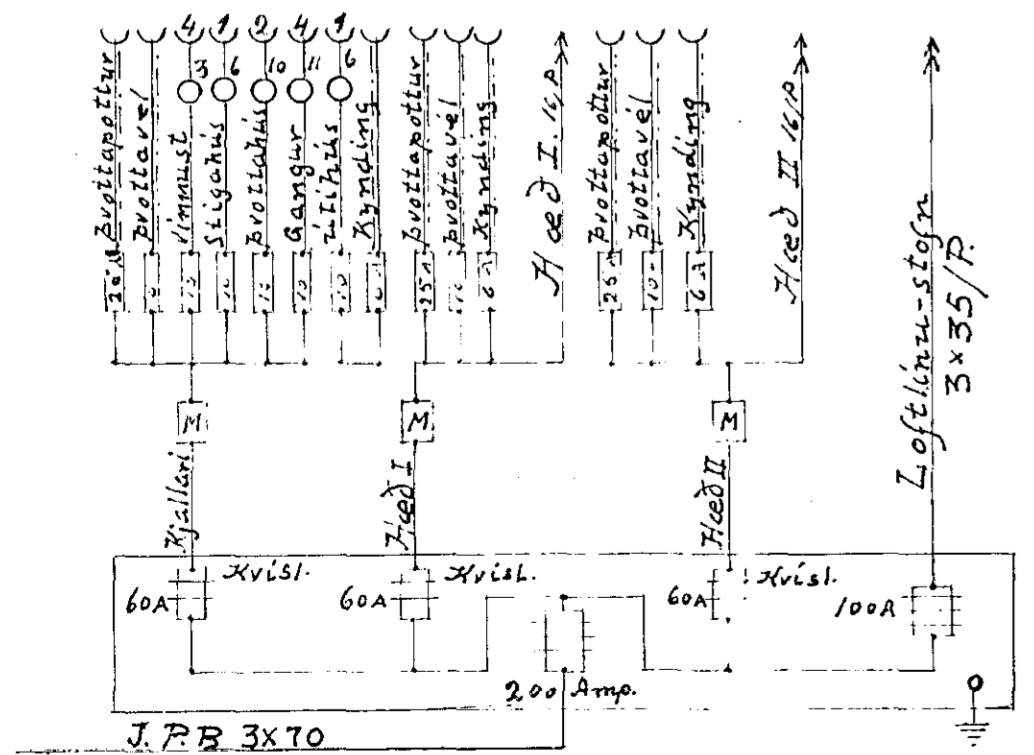 4 1 2 4 1
3 6 10 11 6
Þvottapottur
Þvottavél
Vinnust
Stigahús
Þvottahús
Gangur
Útihús
Kynding
Þvottapottur
Þvottavél
Kynding
Hæð I. 16/P.
Þvottapottur
Þvottavél
Kynding
Hæð II 16/P.
Loftlínu-stofn
3x35/P.
25A
10
10
10
25A
6A
25A
10
6A
M
M
M
Kjallari
Hæð I
Hæð II
Kvísl.
Kvísl.
Kvísl.
60A
60A
60A
100A
200 Amp.
J.P.B 3X70